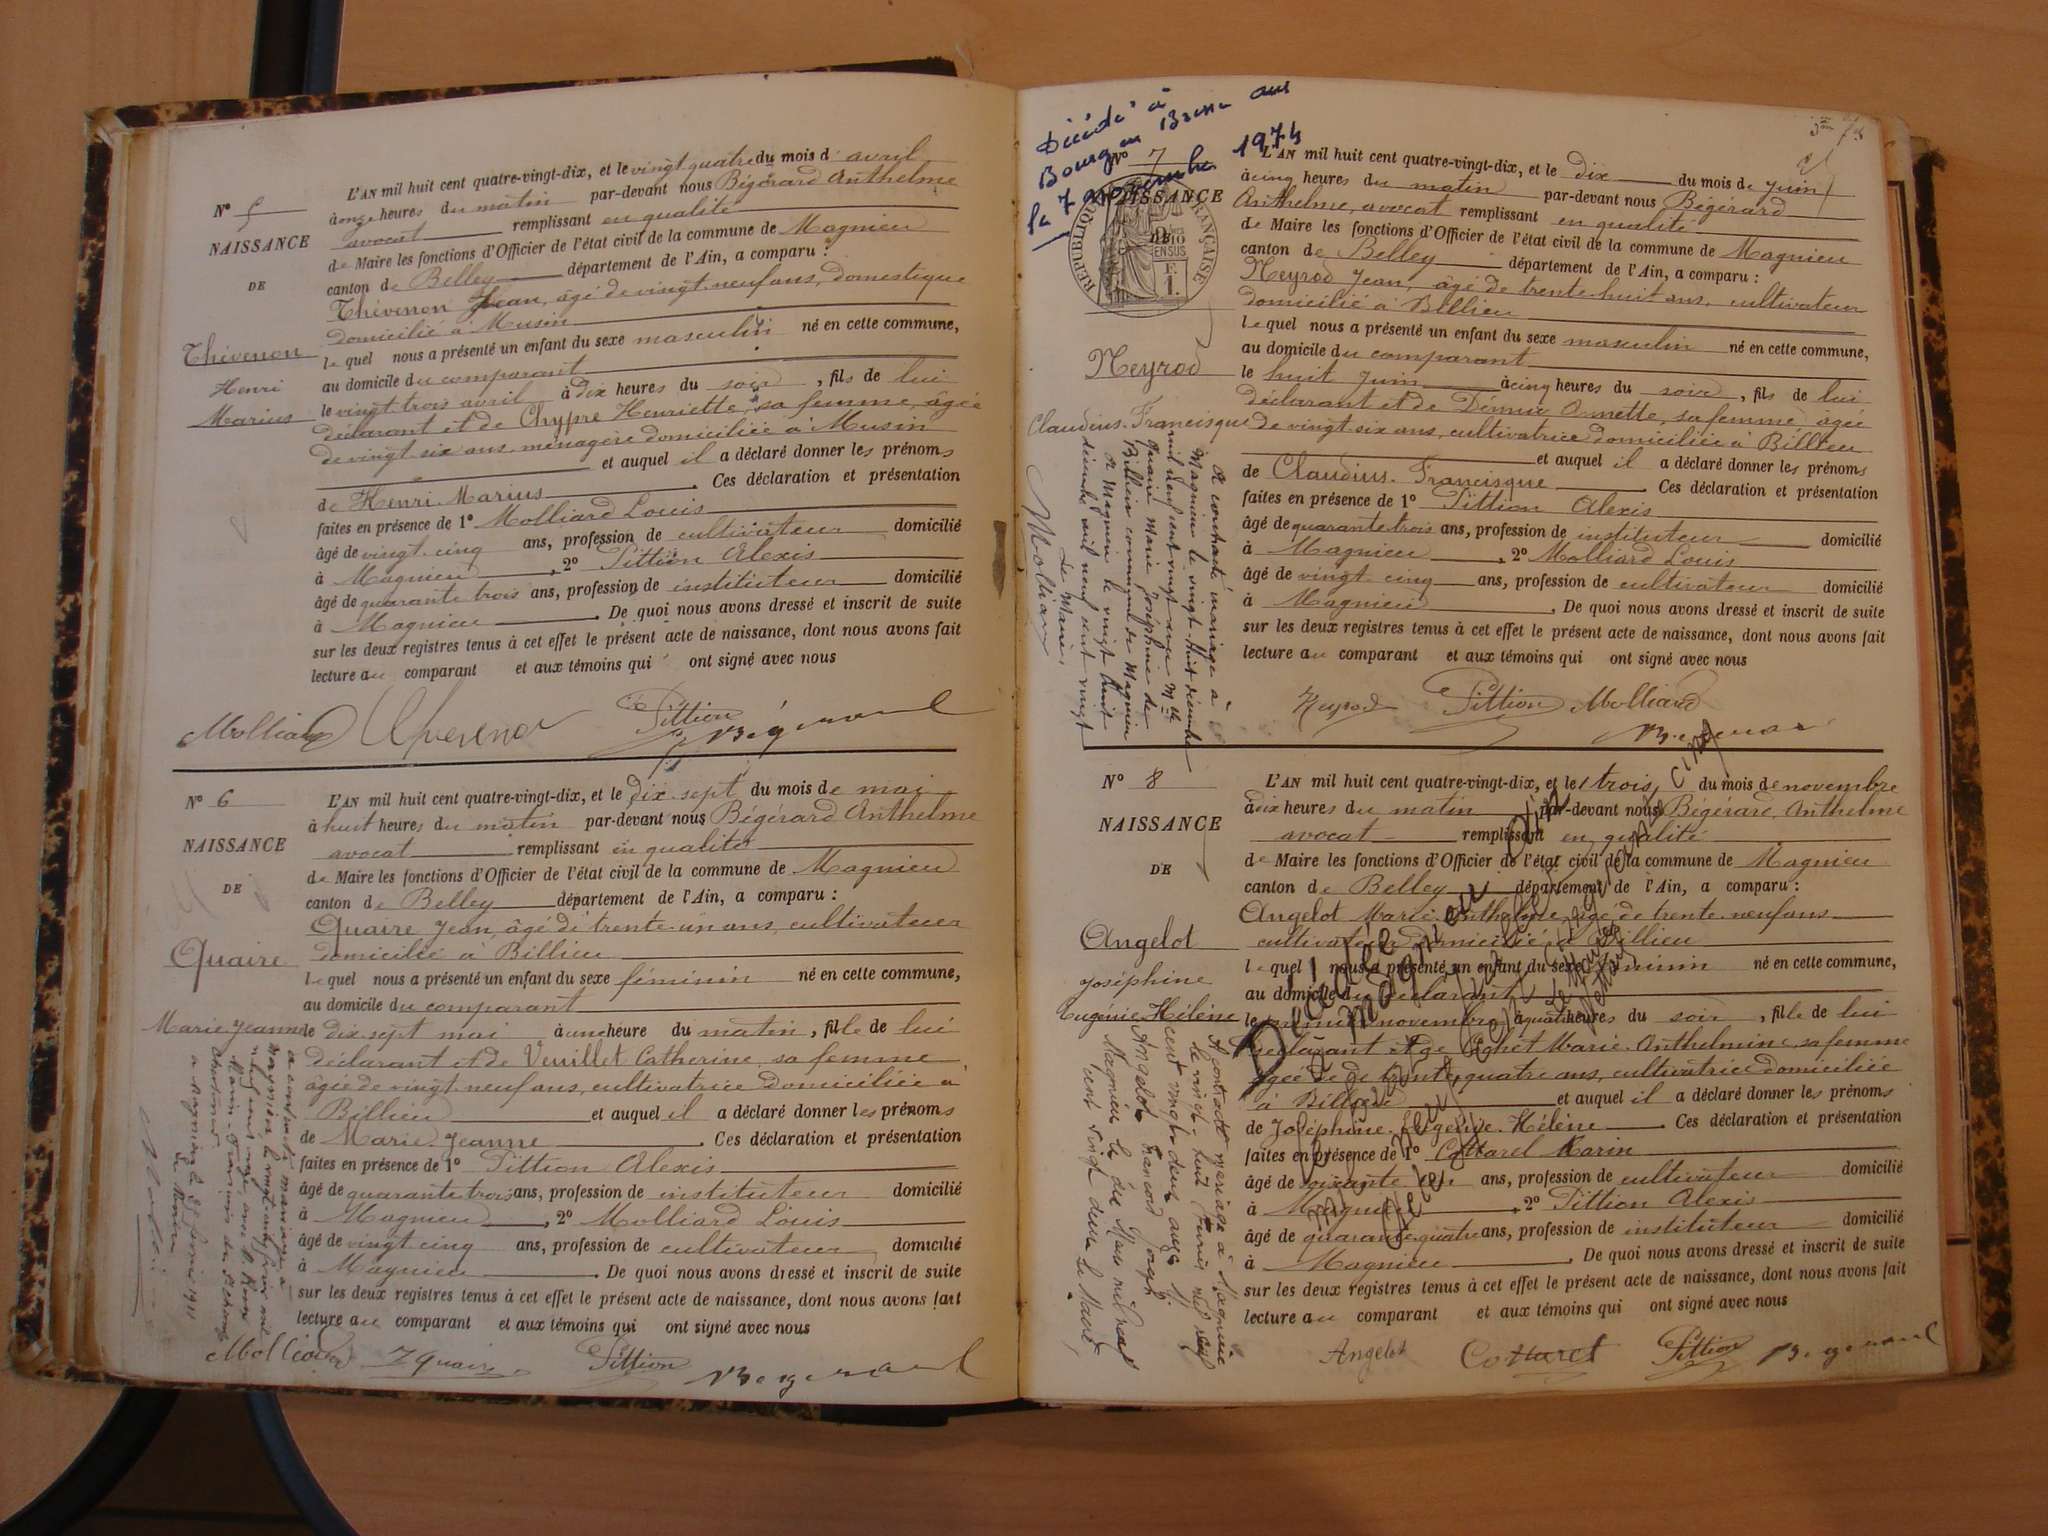 L'AN mil huit cent quatre-vingt-dix, et le vingt quatre du mois d'avril
à onze heures du matin par-devant nous Bégérard Anthelme
avocat remplissant en qualité
de Maire les fonctions d'Officier de l'état civil de la commune de Magnieu
canton de Belley département de l'Ain, a comparu :
Thévenon Jean, âgé de vingt-neuf ans, domestique
domicilié à Musin
lequel nous a présenté un enfant du sexe masculin né en cette commune,
au domicile du comparant
le vingt-trois avril à dix heures du soir, fils de lui
déclarant et de Chypre Henriette, sa femme, âgée
de vingt-six ans ménagère domiciliée à Musin
et auquel il a déclaré donner les prénoms
de Henri Marius. Ces déclaration et présentation
faites en présence de 1° Molliard Louis
âgé de vingt-cinq ans, profession de cultivateur domicilié
à Magnieu, 2° Pittion Alexis
âgé de quarante trois ans, profession de instituteur domicilié
à Magnieu. De quoi nous avons dressé et inscrit de suite
sur les deux registres tenus à cet effet le présent acte de naissance, dont nous avons fait
lecture au comparant et aux témoins qui ont signé avec nous
N° 5
NAISSANCE
DE
Thévenon
Henri
Marius
Molliard Thevenon Pittion Bégérard
N° 6
NAISSANCE
DE
Quaire
Marie Jeanne
L'AN mil huit cent quatre-vingt-dix, et le dix sept du mois de mai
à huit heures du matin par-devant nous Bégérard Anthelme
avocat remplissant en qualité
de Maire les fonctions d'Officier de l'état civil de la commune de Magnieu
canton de Belley département de l'Ain, a comparu :
Quaire Jean, âgé de trente un ans, cultivateur
domicilié à Billieu
lequel nous a présenté un enfant du sexe féminin né en cette commune,
au domicile du comparant
le dix sept mai à une heure du matin, fille de lui
déclarant et de Veuillet Catherine, sa femme
âgée de vingt-neuf ans, cultivatrice domiciliée à
Billieu et auquel il a déclaré donner les prénoms
de Marie Jeanne. Ces déclaration et présentation
faites en présence de 1° Pittion Alexis
âgé de quarante trois ans, profession de instituteur domicilié
à Magnieu, 2° Molliard Louis
âgé de vingt cinq ans, profession de cultivateur domicilié
à Magnieu. De quoi nous avons dressé et inscrit de suite
sur les deux registres tenus à cet effet le présent acte de naissance, dont nous avons fait
lecture au comparant et aux témoins qui ont signé avec nous
a contracté mariage à
Magnieu le vingt-
Molliard J Quaire Pittion Bégérard
Décédé à
Bourg en Bresse ans
le 7 novembre 1974
N° 7
NAISSANCE
RÉPUBLIQUE FRANÇAISE
Neyrod
Claudius-Francisque
L'AN mil huit cent quatre-vingt-dix, et le dix du mois de juin
à cinq heures du matin par-devant nous Bégérard
Anthelme, avocat remplissant en qualité
de Maire les fonctions d'Officier de l'état civil de la commune de Magnieu
canton de Belley département de l'Ain, a comparu :
Neyrod Jean, âgé de trente-huit ans, cultivateur
domicilié à Billieu
lequel nous a présenté un enfant du sexe masculin né en cette commune,
au domicile du comparant
le huit juin à cinq heures du soir, fils de lui
déclarant et de Annette, sa femme âgée
de vingt-six ans, cultivatrice domiciliée à Billieu
et auquel il a déclaré donner les prénoms
de Claudius-Francisque. Ces déclaration et présentation
faites en présence de 1° Pittion Alexis
âgé de quarante trois ans, profession de instituteur domicilié
à Magnieu, 2° Molliard Louis
âgé de vingt cinq ans, profession de cultivateur domicilié
à Magnieu. De quoi nous avons dressé et inscrit de suite
sur les deux registres tenus à cet effet le présent acte de naissance, dont nous avons fait
lecture au comparant et aux témoins qui ont signé avec nous
a contracté mariage à
Magnieu le vingt-huit décembre
mil neuf cent vingt avec Mlle
Quaire Marie Joséphine de
Billieu commune de Magnieu
A Magnieu le vingt huit
décembre mil neuf cent vingt
Le Maire,
Molliard
Neyrod Pittion Molliard
Bégérard
N° 8
NAISSANCE
DE
Angelot
Joséphine
Eugénie Hélène
L'AN mil huit cent quatre-vingt-dix, et le trois du mois de novembre
à dix heures du matin par-devant nous Bégérard, Anthelme
avocat remplissant en qualité
de Maire les fonctions d'Officier de l'état civil de la commune de Magnieu
canton de Belley département de l'Ain, a comparu :
Angelot Marie Anthelme, âgé de trente-neuf ans
cultivateur domicilié à Billieu
lequel nous a présenté un enfant du sexe féminin né en cette commune,
au domicile du déclarant
le premier novembre à quatre heures du soir, fille de lui
déclarant et de Marie-Anthelmine, sa femme
âgée de trente quatre ans, cultivatrice domiciliée
à Billieu et auquel il a déclaré donner les prénoms
de Joséphine-Eugénie-Hélène. Ces déclaration et présentation
faites en présence de 1° Cottarel Marin
âgé de soixante ans, profession de cultivateur domicilié
à Magnieu, 2° Pittion Alexis
âgé de quarante quatre ans, profession de instituteur domicilié
à Magnieu. De quoi nous avons dressé et inscrit de suite
sur les deux registres tenus à cet effet le présent acte de naissance, dont nous avons fait
lecture au comparant et aux témoins qui ont signé avec nous
A contracté mariage à Magnieu
le vingt-huit mil neuf
cent vingt deux avec M.
Angelot
Magnieu le mil neuf
cent vingt deux Le Maire
Décédée
à Magnieu
Le Maire
Angelot Cottarel Pittion Bégérard